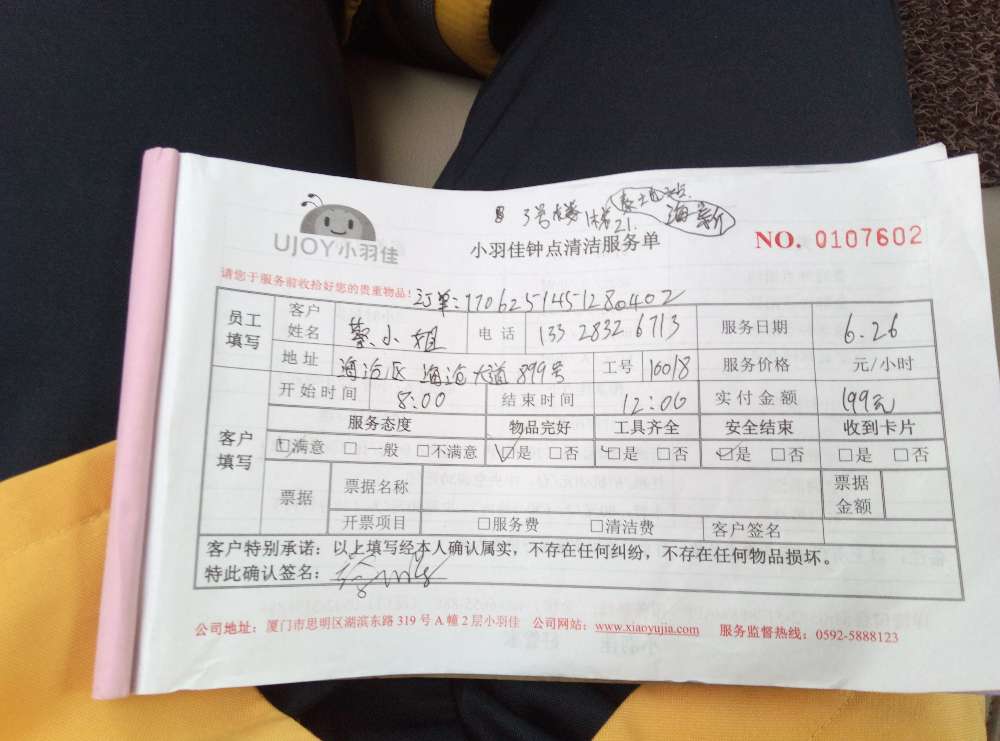 3号楼 21.
海新
UJOY小羽佳
小羽佳钟点清洁服务单
NO. 0107602
请您于服务前收拾好您的贵重物品!
订单:1706251451280402
员工填写 客户姓名 小姐 电话 133 2832 6713 服务日期 6.26
地址 海沧区 海沧大道899号 工号 10018 服务价格 元/小时
客户填写 开始时间 8:00 结束时间 12:00 实付金额 199元
服务态度 物品完好 工具齐全 安全结束 收到卡片
☑满意 □一般 □不满意 ☑是 □否 ☑是 □否 ☑是 □否 □是 □否
票据 票据名称 票据金额
开票项目 □服务费 □清洁费 客户签名
客户特别承诺:以上填写经本人确认属实,不存在任何纠纷,不存在任何物品损坏。
特此确认签名:
公司地址:厦门市思明区湖滨东路319号A幢2层小羽佳 公司网站:www.xiaoyujia.com 服务监督热线:0592-5888123